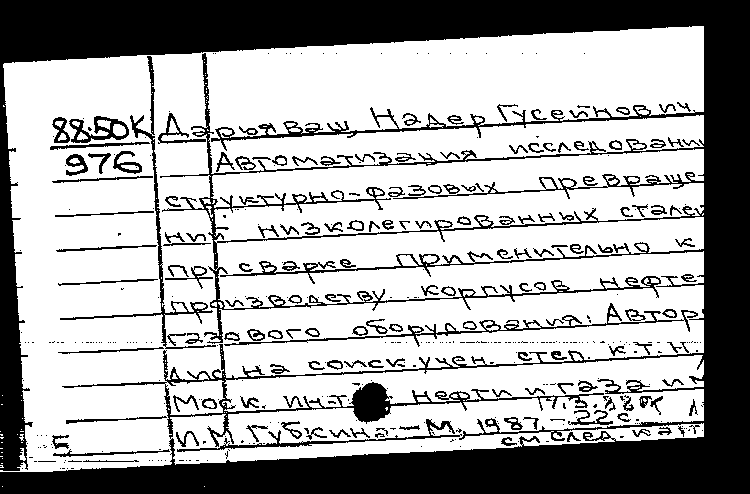 88-50К Дарьяваш, Надер Гусейнович.
976 Автоматизация исследовани
структурно-фазовых превраще-
ний низколегированных сталей
при сварке применительно к
производству корпусов нефте-
газового оборудования: Автор
дис. на соиск. учен. степ. к.т.н.
Моск. ин-т нефти и газа им
И.М. Губкина. - М., 1987. - 22с.
5 см. след. карт